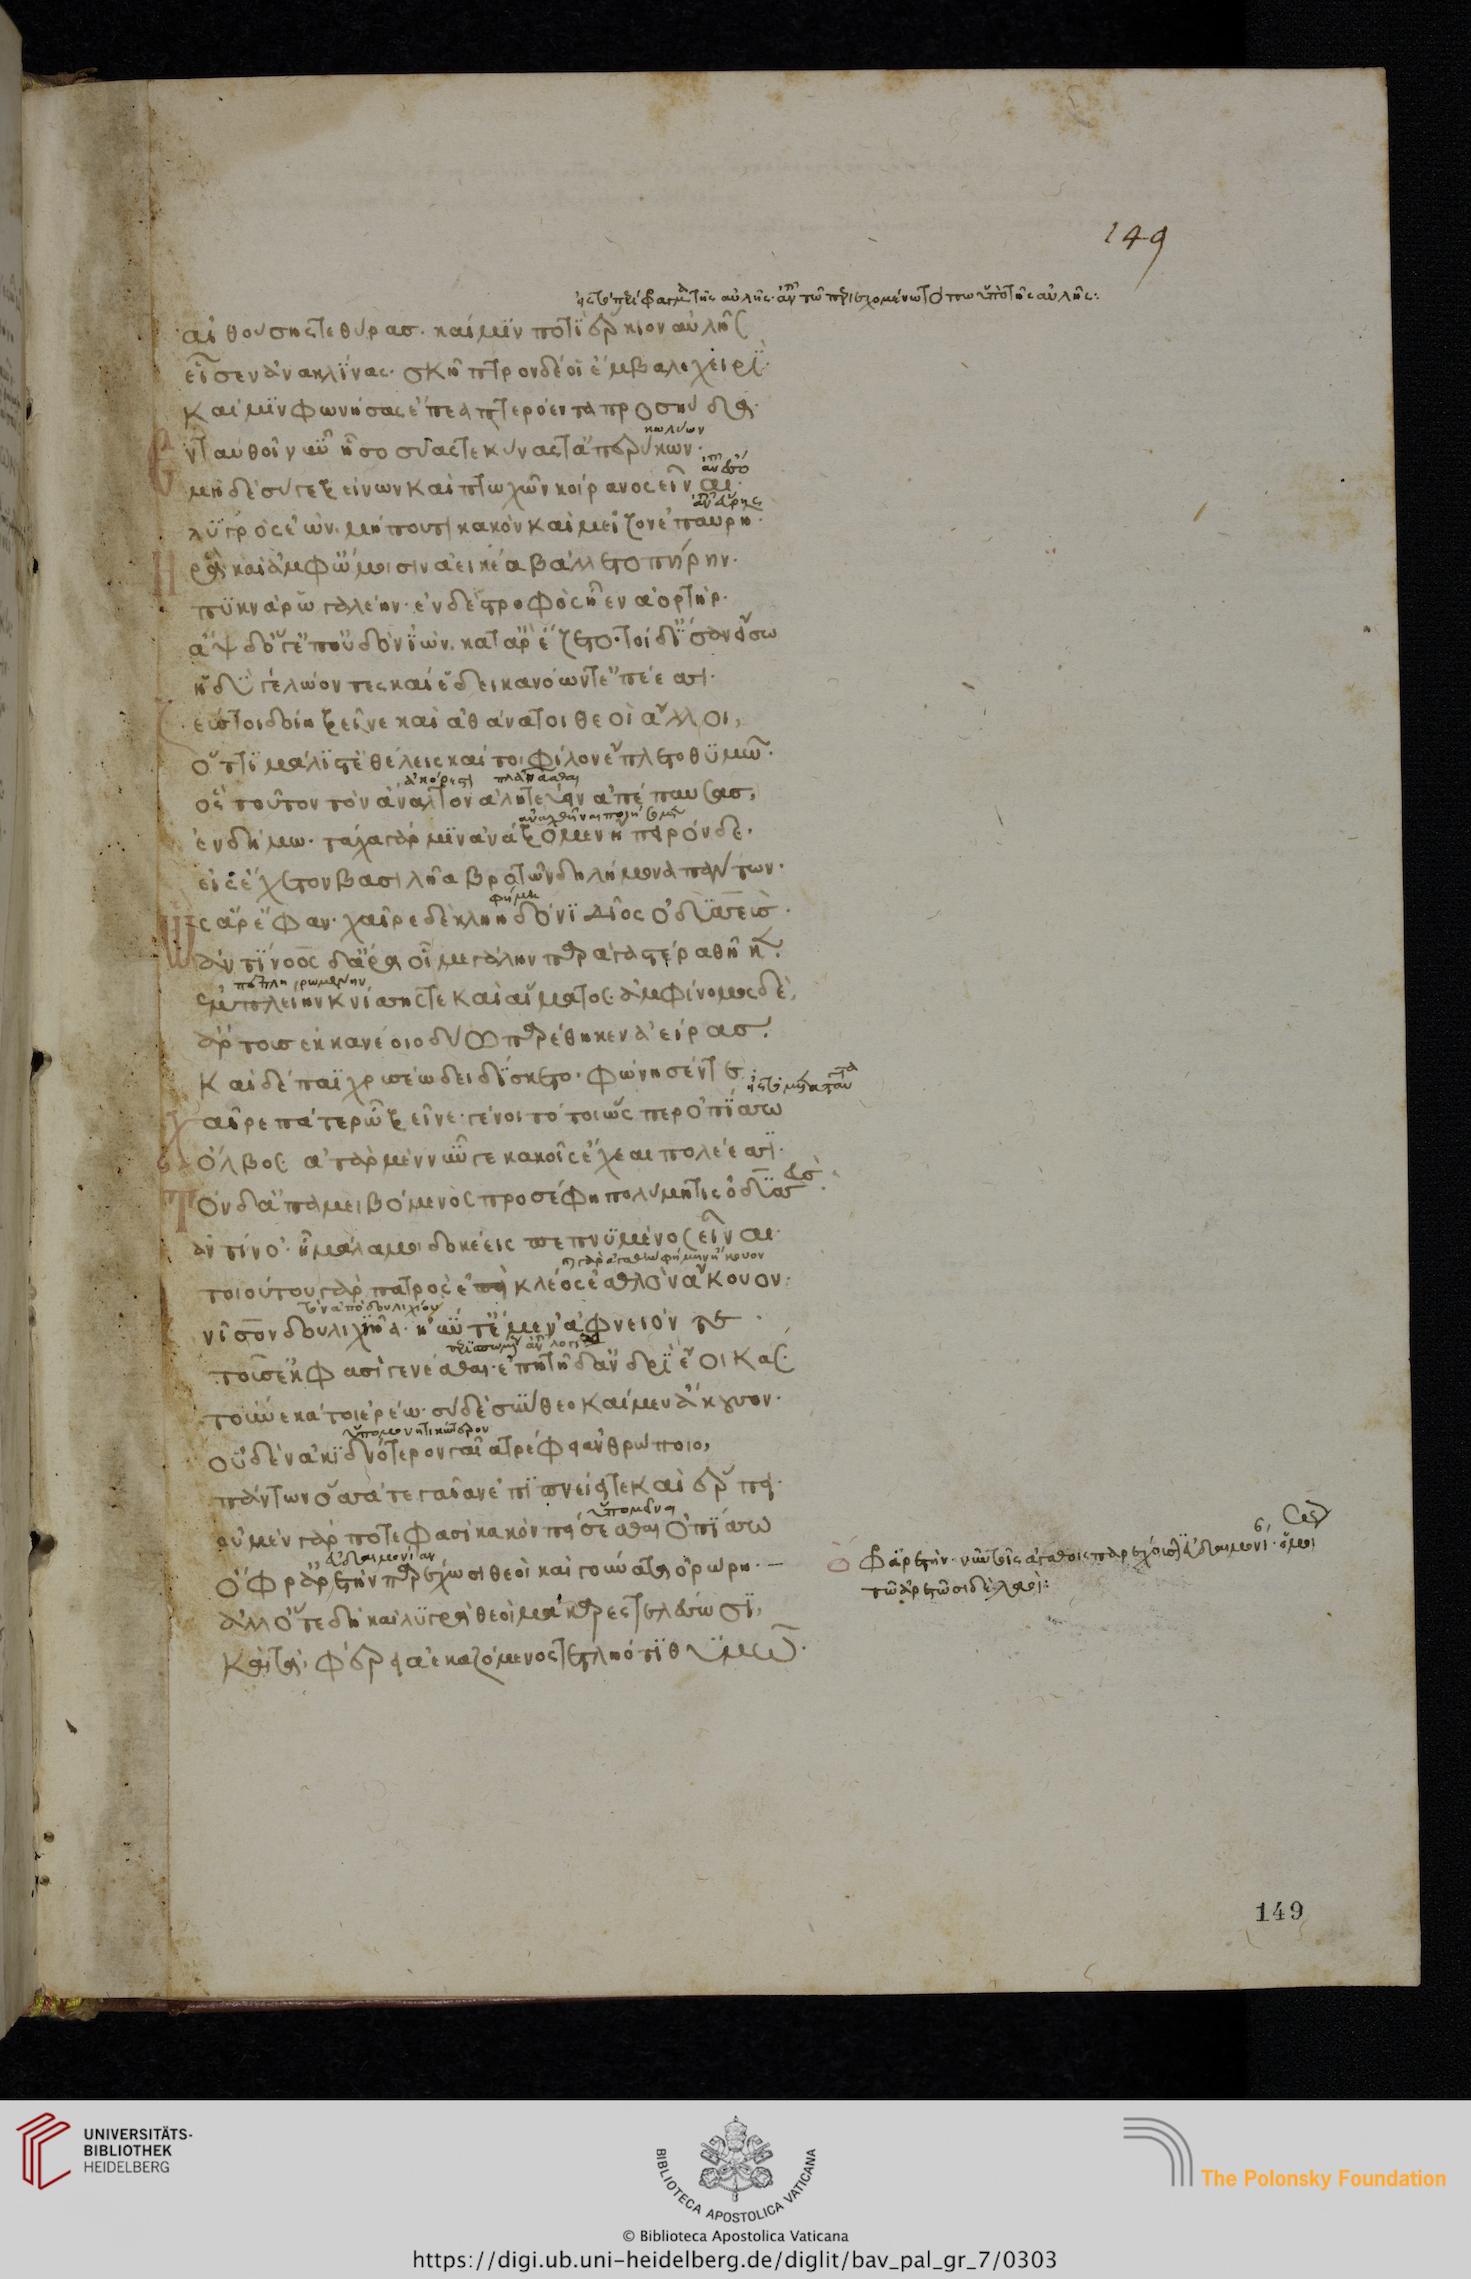 149
αἰθούσης τε θύρας. καί μιν ποτὶ ἑρκίον αὐλῆς
εἷσεν ἀνακλίνας. σκῆπτρον δέ οἱ ἔμβαλε χειρί.
καί μιν φωνήσας ἔπεα πτερόεντα προσηύδα.
κωλύων
ἐνταυθοῖ νῦν ἧσο σύας τε κύνας τ' ἀπερύκων.
μηδὲ σύ γε ξείνων καὶ πτωχῶν κοίρανος εἶναι.
λυγρὸς ἐών. μή πού τι κακὸν καὶ μεῖζον ἐπαύρῃ.
ἦ ῥα καὶ ἀμφ' ὤμοισιν ἀεικέα βάλλετο πήρην.
πυκνὰ ῥωγαλέην. ἐν δὲ στρόφος ἦεν ἀορτήρ.
ἂψ δ' ὅ γ' ἐπ' οὐδὸν ἰὼν κατ' ἄρ' ἕζετο. τοὶ δ' ἴσαν εἴσω
ἡδὺ γελώοντες καὶ ἐδεικανόωντ' ἐπέεσσι.
ζεύς τοι δοίη ξεῖνε καὶ ἀθάνατοι θεοὶ ἄλλοι,
ὅττι μάλιστ' ἐθέλεις καί τοι φίλον ἔπλετο θυμῷ.
ὃς τοῦτον τὸν ἄναλτον ἀλητεύειν ἀπέπαυσας,
ἐν δήμῳ. τάχα γάρ μιν ἀνάξομεν ἤπειρόνδε.
εἰς ἔχετον βασιλῆα βροτῶν δηλήμονα πάντων.
φήμῃ
ὣς ἄρ' ἔφαν. χαῖρε δὲ κληηδόνι δῖος ὀδυσσεύς.
ἀντίνοος δ' ἄρα οἱ μεγάλην παρὰ γαστέρα θῆκε.
πεπληρωμένην
ἐμπλείην κνίσης τε καὶ αἵματος. ἀμφίνομος δὲ,
ἄρτους ἐκ κανέοιο δύω παρέθηκεν ἀείρας.
καὶ δέπαϊ χρυσέῳ δειδίσκετο. φώνησέν τε.
χαῖρε πάτερ ὦ ξεῖνε. γένοιτό τοι ὥς περ ὀπίσσω
ὄλβος ἀτὰρ μὲν νῦν γε κακοῖς ἔχεαι πολέεσσι.
τὸν δ' ἀπαμειβόμενος προσέφη πολύμητις ὀδυσσεύς.
ἀμφίνομ' ἦ μάλα μοι δοκέεις πεπνυμένος εἶναι.
τοιούτου γὰρ πατρὸς ἐπεὶ κλέος ἐσθλὸν ἄκουον.
νῖσον δουλιχιῆα. ἠΰν τ' ἔμεν ἀφνειόν τε.
τοῦ σ' ἔκ φασὶ γενέσθαι. ἐπητῇ δ' ἀνδρὶ ἔοικας.
τοὔνεκά τοι ἐρέω. σὺ δὲ σύνθεο καί μευ ἄκουσον.
οὐδὲν ἀκιδνότερον γαῖα τρέφει ἀνθρώποιο,
πάντων ὅσσά τε γαῖαν ἔπι πνείει τε καὶ ἕρπει.
οὐ μὲν γάρ ποτέ φησι κακὸν πείσεσθαι ὀπίσσω
ὄφρ' ἀρετὴν παρέχωσι θεοὶ καὶ γούνατ' ὀρώρῃ.
ἀλλ' ὅτε δὴ καὶ λυγρὰ θεοὶ μάκαρες τελέωσι,
καὶ τὰ φέρει ἀεκαζόμενος τετληότι θυμῷ.
149
UNIVERSITÄTS-
BIBLIOTHEK
HEIDELBERG
BIBLIOTECA APOSTOLICA VATICANA
The Polonsky Foundation
© Biblioteca Apostolica Vaticana
https://digi.ub.uni-heidelberg.de/diglit/bav_pal_gr_7/0303